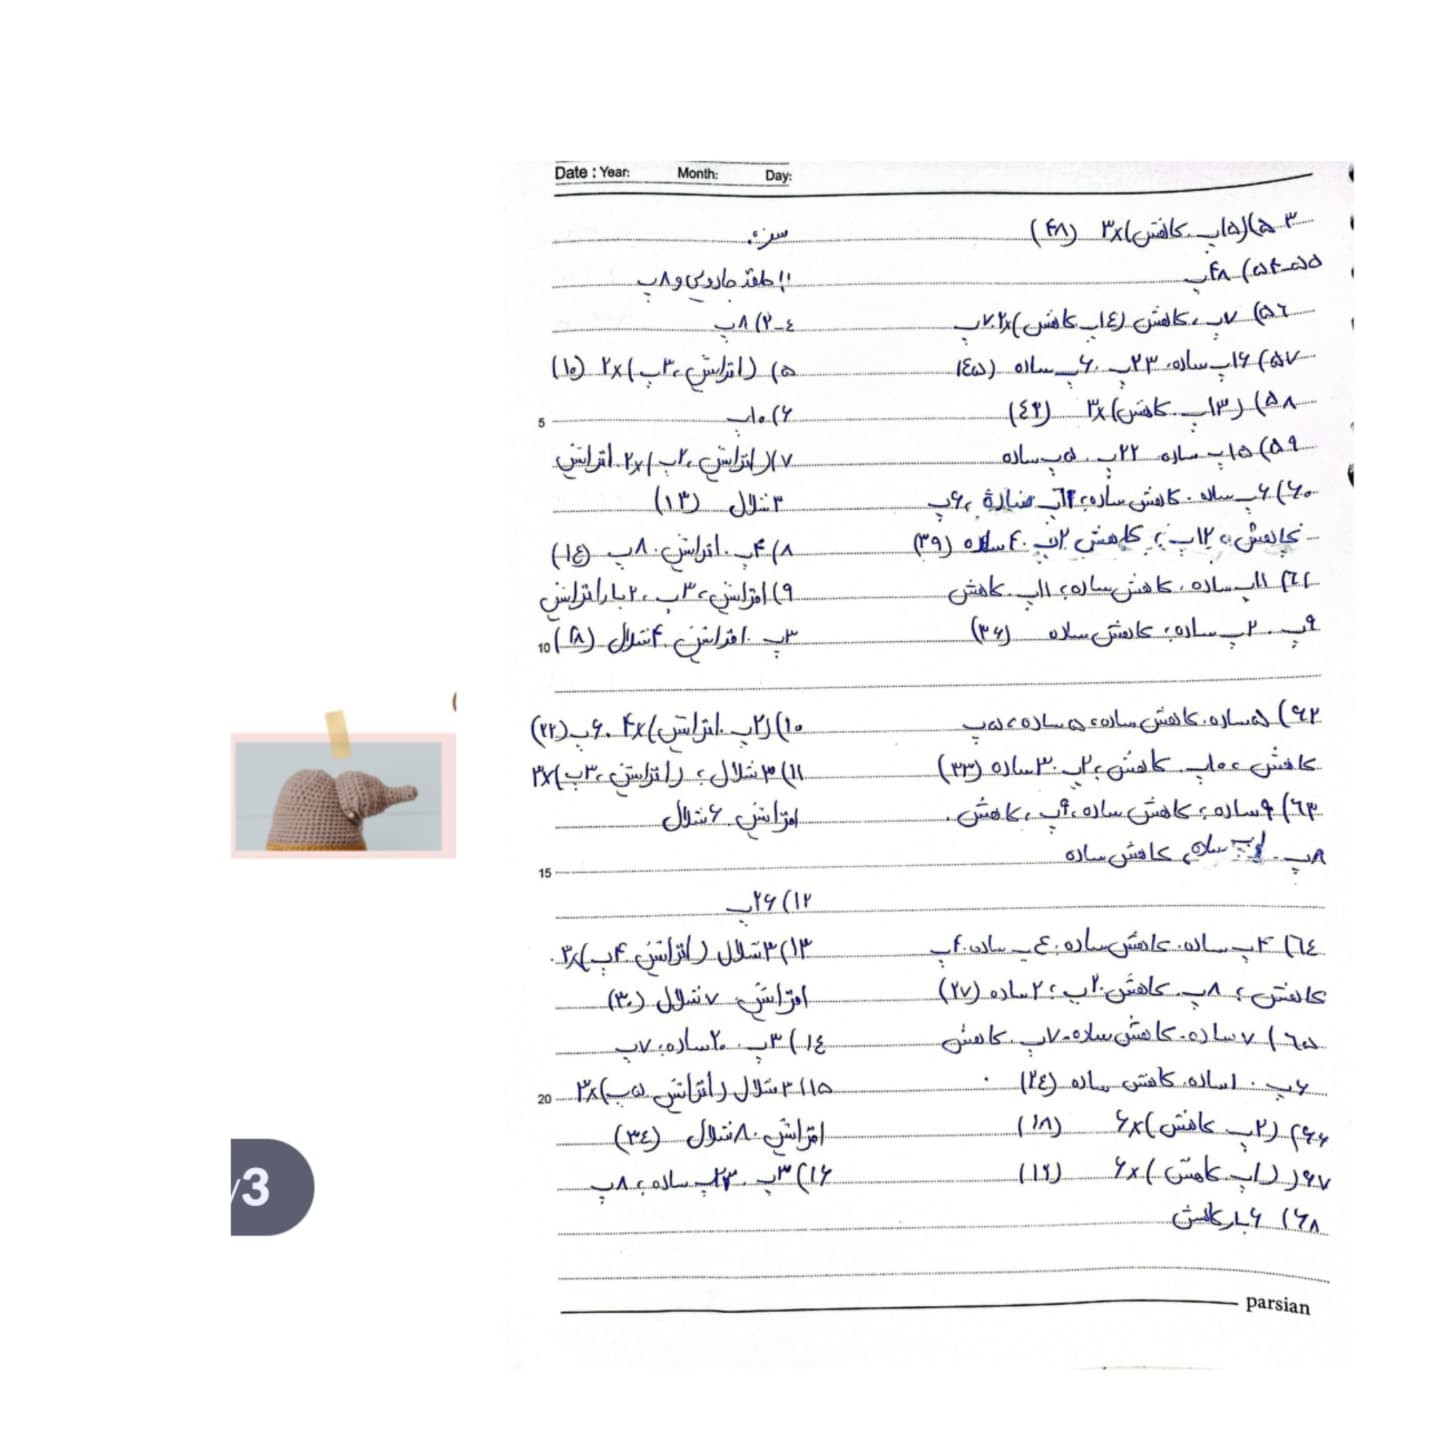 Date : Year: Month: Day:
۵۳) (۵پ. کاهش)×۳ (۴۸)
۵۴-۵۵) ۴۸پ
۵٦) ۷پ، کاهش (۱٤پ کاهش)×۲، ۷پ
۵۷) ۱۶پ ساده، ۲۳پ، ۶پ ساده (٤۵)
۵۸) (۱۳پ. کاهش)×۳ (٤۲)
۵۹) ۱۵پ ساده ۲۲پ. ۵پ ساده
۶۰) ۶پ ساده. کاهش ساده، ۶پ
کاهش، ۱۲پ، کاهش ۲پ. ٤ ساده (۳۹)
٦۱) ۱۱پ ساده. کاهش ساده، ۱۱پ. کاهش
۹پ. ۲پ ساده، کاهش ساده (۳۶)
۶۲) ۵ ساده. کاهش ساده، ۵ ساده، ۵پ
کاهش، ۱۰پ. کاهش، ۲پ. ۳ ساده (۳۳)
٦۳) ۹ ساده، کاهش ساده، ۹پ، کاهش.
۸پ. ساده، کاهش ساده
٦٤) ۴پ ساده. کاهش ساده. ٤پ ساده. ۴پ
کاهش، ۸پ. کاهش. ۲پ، ۲ ساده (۲۷)
٦۵) ۷ ساده. کاهش ساده. ۷پ. کاهش
۶پ. ۱ ساده. کاهش ساده (۲٤)
۶۶) (۲پ کاهش)×۶ (۱۸)
۶۷) (۱پ. کاهش)×۶ (۱۲)
۶۸) ۶ بار کاهش
سر:
!! حلقه جادویی و ۸پ
۲-٤) ۸پ
۵) (افزایش، ۳پ)×۲ (۱۰)
5 ۶) ۱۰پ
۷) (افزایش، ۲پ)×۲. افزایش
۳ شلال (۱۳)
۸) ۴پ. افزایش. ۸پ (۱٤)
۹) افزایش، ۳پ، ۲ بار افزایش
10 ۳پ. افزایش. ۴ شلال (۱۸)
۱۰) (۲پ. افزایش)×۴. ۶پ (۲۲)
۱۱) ۳ شلال، (افزایش، ۳پ)×۳
افزایش. ۶ شلال
15
۱۲) ۲۶پ
۱۳) ۳ شلال (افزایش ۴پ)×۳.
افزایش. ۷ شلال (۳۰)
۱٤) ۳پ. ۲۰ ساده، ۷پ
20 ۱۵) ۳ شلال (افزایش ۵پ)×۳
افزایش. ۸ شلال (۳٤)
۱۶) ۳پ. ۲۳پ ساده، ۸پ
parsian
/3